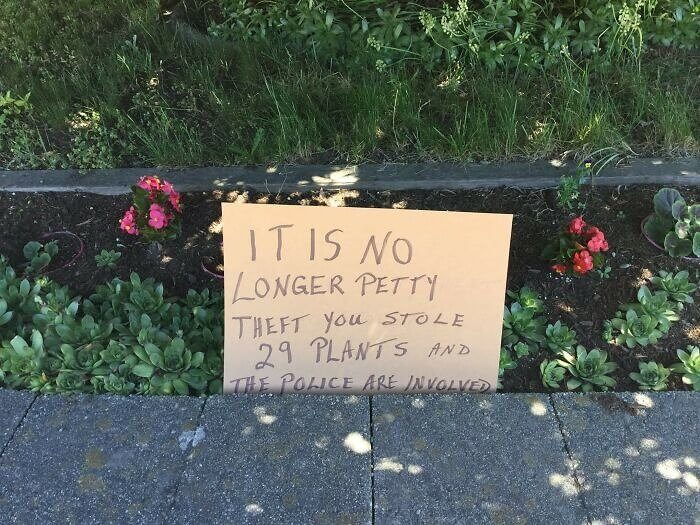 IT IS NO
LONGER PETTY
THEFT YOU STOLE
29 PLANTS AND
THE POLICE ARE INVOLVED